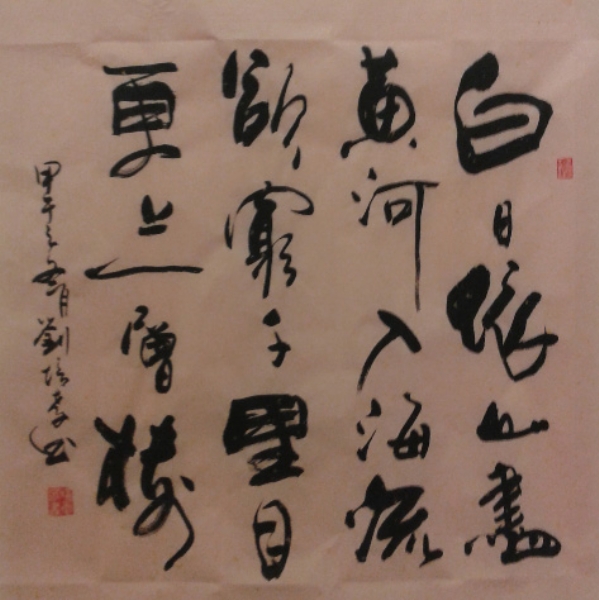 白日依山盡
黃河入海流
欲窮千里目
更上一層樓
甲午之月劉培書